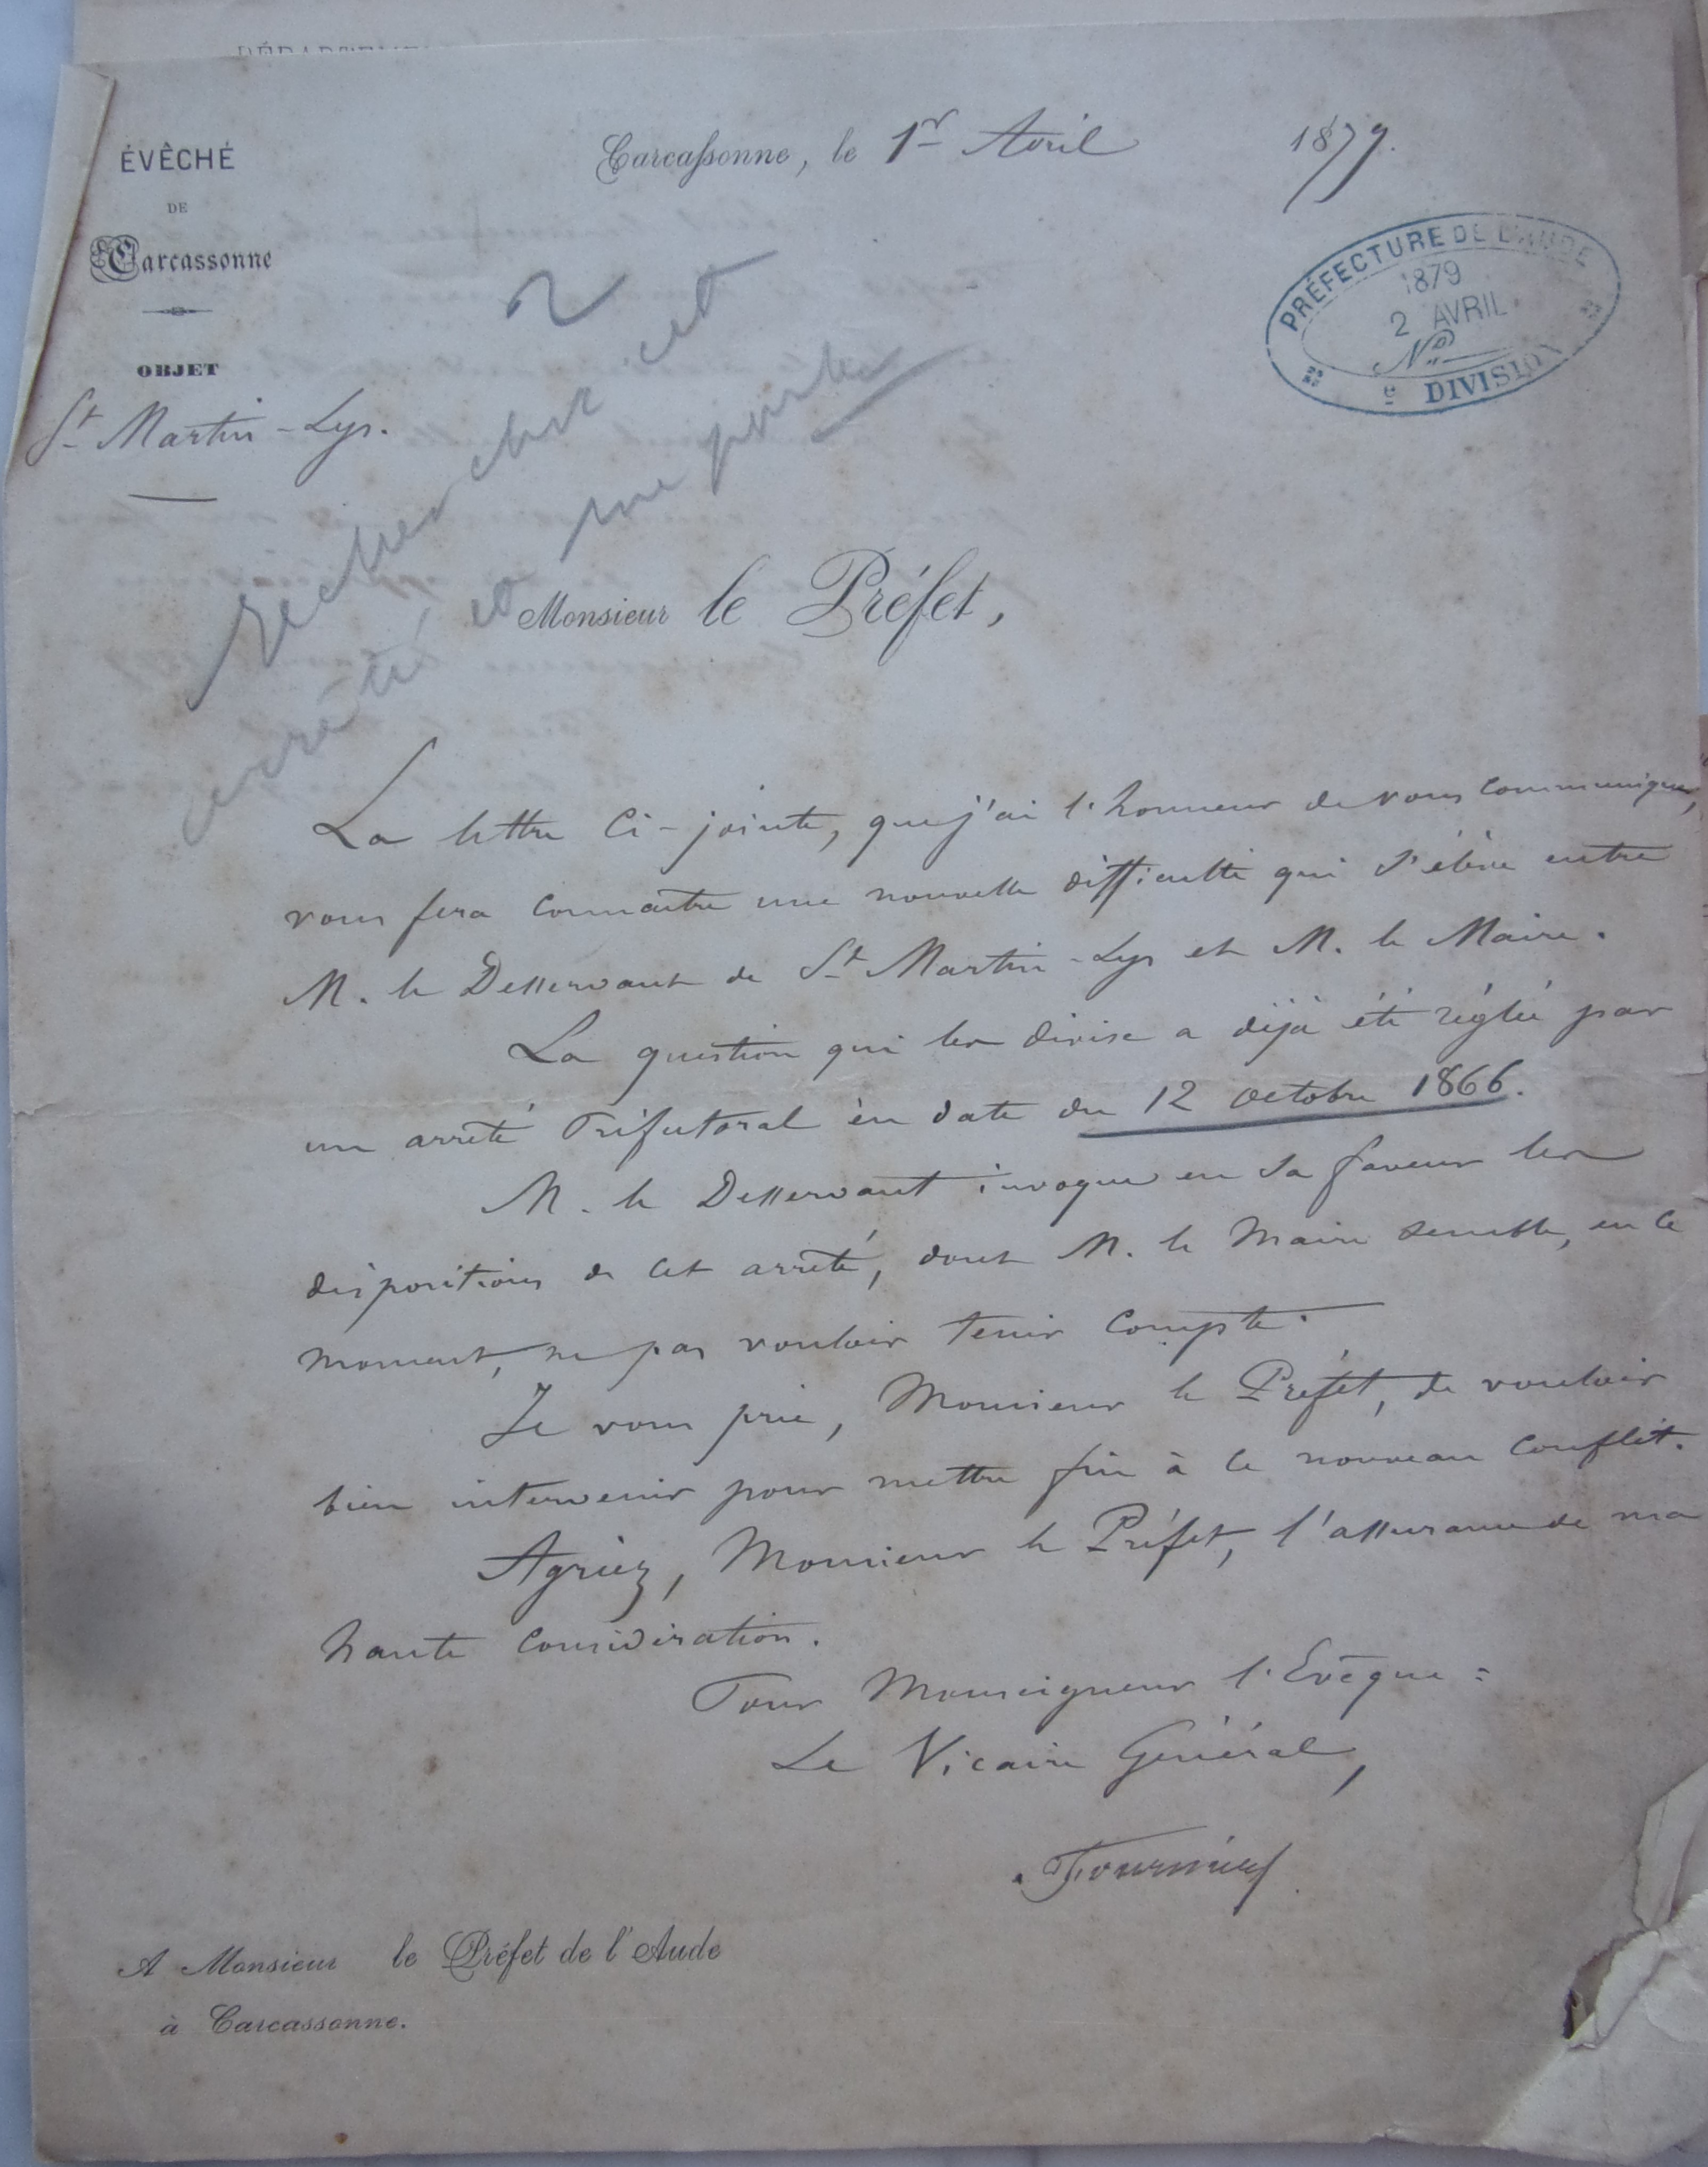 ÉVÊCHÉ
DE
Carcassonne
OBJET
St Martin-Lys.
Carcassonne, le 1er Avril 1879.
PRÉFECTURE DE L'AUDE
1879
2 AVRIL
No
e DIVISION
2
Rechercher cet
arrêté et me parler
Monsieur le Préfet,
La lettre ci-jointe, que j'ai l'honneur de vous communiquer,
vous fera connaitre une nouvelle difficulté qui s'élève entre
M. le Desservant de St Martin-Lys et M. le Maire.
La question qui les divise a déjà été réglée par
un arrêté Préfectoral en date du 12 octobre 1866.
M. le Desservant invoque en sa faveur les
dispositions de cet arrêté, dont M. le Maire semble, en ce
moment, ne pas vouloir tenir compte.
Je vous prie, Monsieur le Préfet, de vouloir
bien intervenir pour mettre fin à ce nouveau conflit.
Agréez, Monsieur le Préfet, l'assurance de ma
haute considération.
Pour Monseigneur l'Evêque :
Le Vicaire Général,
Fournier
A Monsieur le Préfet de l'Aude
à Carcassonne.